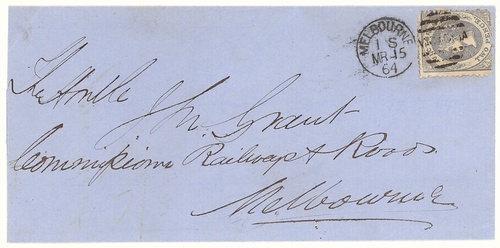 MELBOURNE
1 S
MR 15
64
The Honble
J. M. Grant
Commissioner Railways & Roads
Melbourne